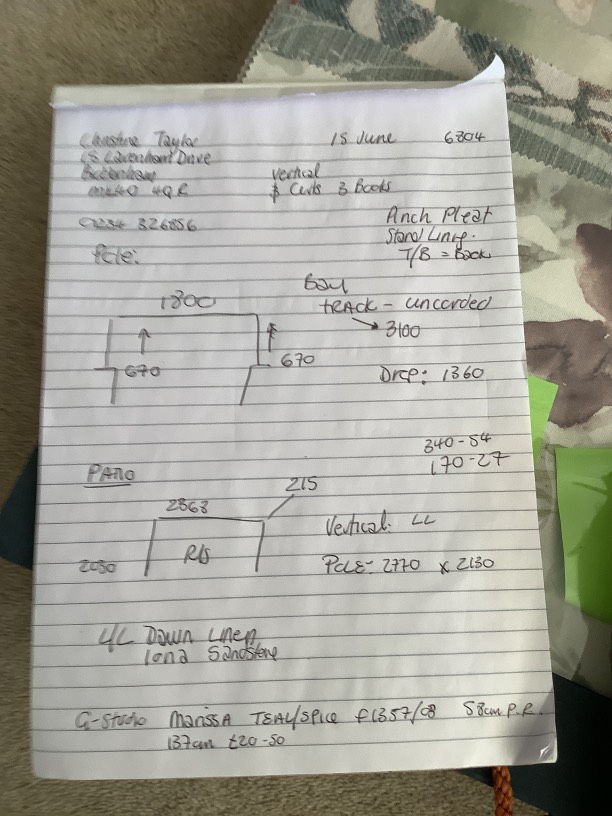 Christine Taylor 15 June 6804
18 Cavenham Drive
vertical
MK40 4QR & Curts 3 Books
01234 326856
Anch Pleat
Stand Lining.
T/B = Back
Pole:
Bay
1800
TRACK - uncorded
3100
670 670
Drop: 1360
340-54
170-27
PATIO
215
2868
Vertical: LL
R/S
2080 Pole: 2770 x 2130
L/L Down Linen
Iona Sandstone
G-Studio Marissa TEAL/Spice F1357/08 58cm P.R.
137cm £20-50